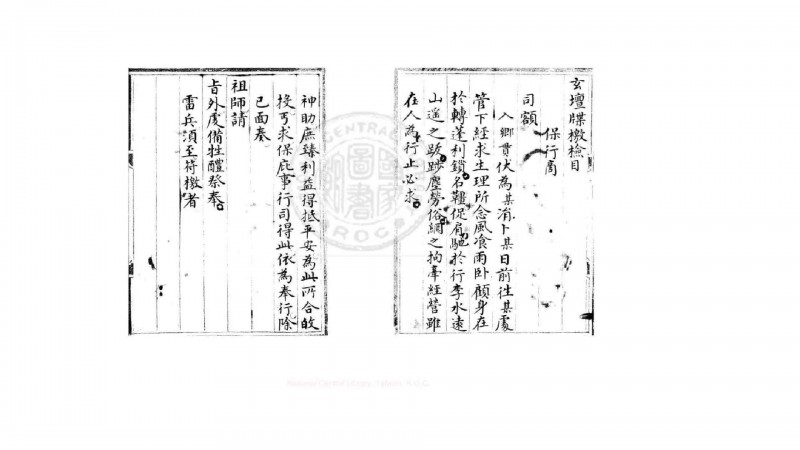 玄壇牒檄檢目
保行商
司額
入鄉貫伏為某涓卜某日前往某處
管下經求生理所念風飡雨卧顧身在
於轉蓬利鎖名韁促肩馳於行李水遠
山遙之跋踄塵勞俗網之拘牽經營雖
在人為行止必求
神助庶臻利益得抵平安為此所合的
投丐求保庇事行司得此依為奉行除
已面奏
祖師請
旨外處備牲醴祭奉
雷兵湏至符檄者
NATIONAL CENTRAL LIBRARY
國家圖書館
National Central Library, Taiwan, R.O.C.